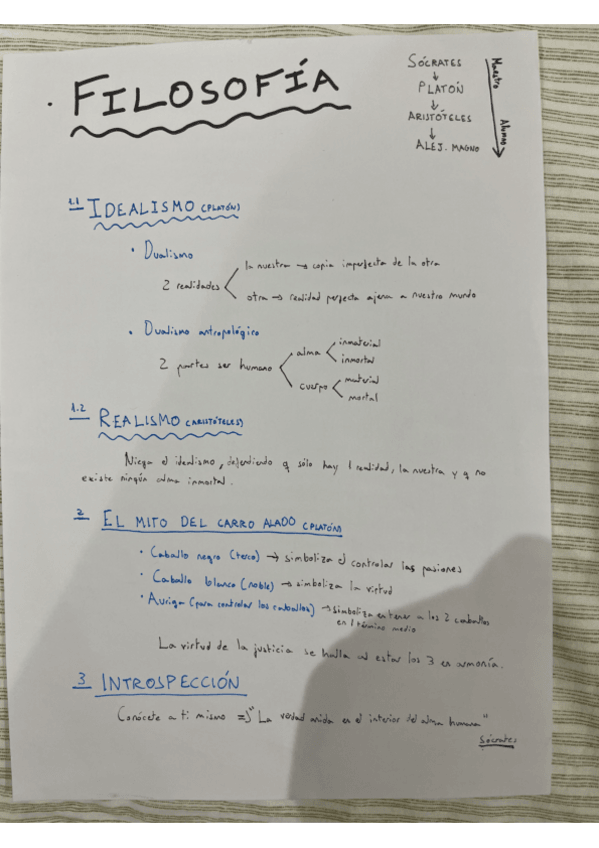 · FILOSOFÍA
SÓCRATES
↓
PLATÓN
↓
ARISTÓTELES
↓
ALEJ. MAGNO
Maestro
Alumno
1.1 IDEALISMO (PLATÓN)
• Dualismo
2 realidades
la nuestra → copia imperfecta de la otra
otra → realidad perfecta ajena a nuestro mundo
• Dualismo antropológico
2 partes ser humano
alma
inmaterial
inmortal
cuerpo
material
mortal
1.2 REALISMO (ARISTÓTELES)
Niega el idealismo, defendiendo q sólo hay 1 realidad, la nuestra y q no
existe ningún alma inmortal.
2 EL MITO DEL CARRO ALADO (PLATÓN)
• Caballo negro (terco) → simboliza el controlar las pasiones
• Caballo blanco (noble) → simboliza la virtud
• Auriga (para controlar los caballos) → simboliza en tener a los 2 caballos
en 1 término medio
La virtud de la justicia se halla al estar los 3 en armonía.
3 INTROSPECCIÓN
Conócete a ti mismo => "La verdad anida en el interior del alma humana"
Sócrates